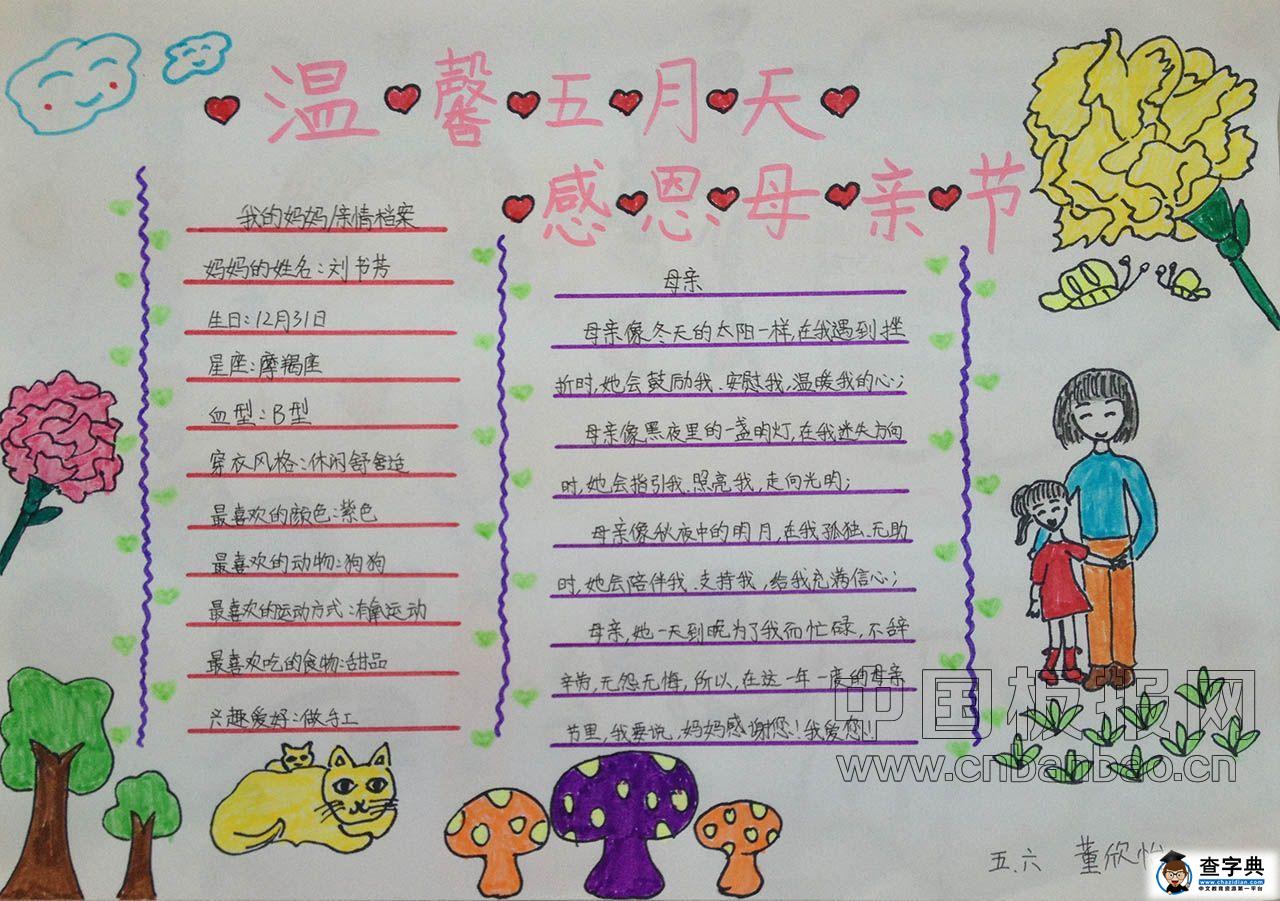 温馨五月天
感恩母亲节
我的妈妈/亲情档案
妈妈的姓名:刘书芳
生日:12月31日
星座:摩羯座
血型:B型
穿衣风格:休闲舒适
最喜欢的颜色:紫色
最喜欢的动物:狗狗
最喜欢的运动方式:有氧运动
最喜欢吃的食物:甜品
兴趣爱好:做手工
母亲
母亲像冬天的太阳一样,在我遇到挫
折时,她会鼓励我、安慰我,温暖我的心;
母亲像黑夜里的一盏明灯,在我迷失方向
时,她会指引我、照亮我,走向光明;
母亲像秋夜中的明月,在我孤独、无助
时,她会陪伴我、支持我,给我充满信心;
母亲,她一天到晚为了我而忙碌,不辞
辛劳,无怨无悔,所以,在这一年一度的母亲
节里,我要说,妈妈感谢您!我爱您!
中国板报网
www.cnbanbao.cn
五.六 董欣怡
查字典
www.chazidian.com
中文教育资源第一平台